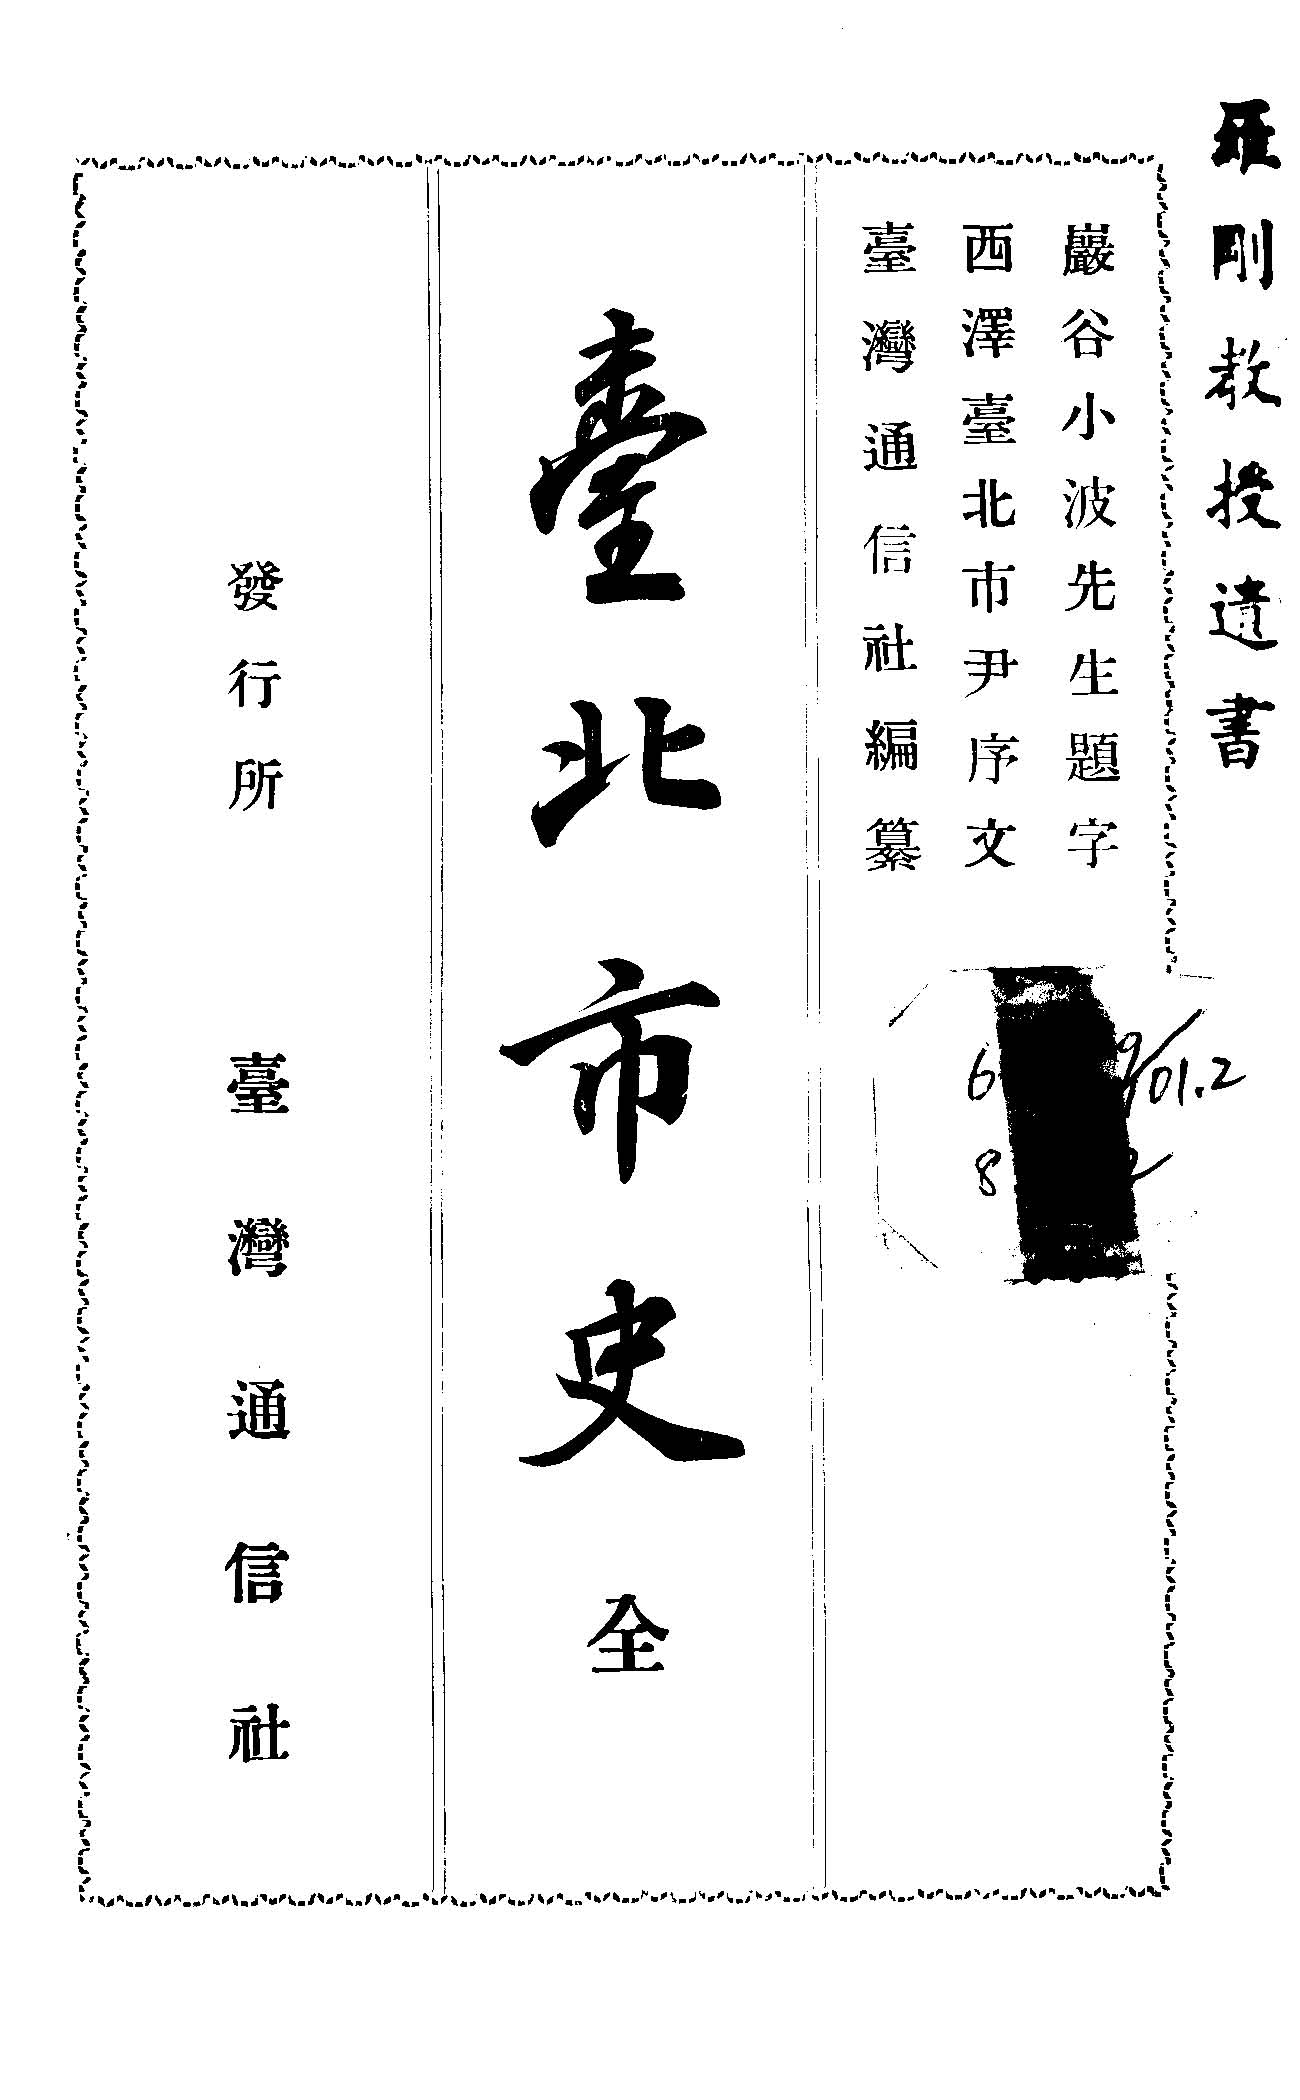 羅剛教授遺書
巖谷小波先生題字
西澤臺北市尹序文
臺灣通信社編纂
臺北市史 全
發行所 臺灣通信社